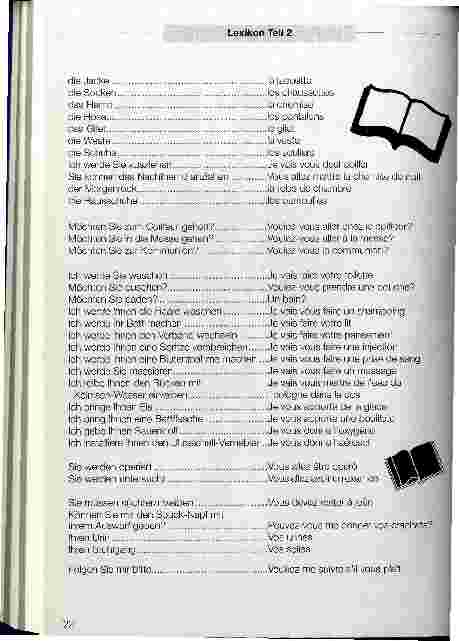 Lexikon Teil 2
die Jacke la jaquette
die Socken les chaussettes
das Hemd la chemise
die Hose les pantalons
das Gilet le gilet
die Weste la veste
die Schuhe les souliers
Ich werde Sie ausziehen Je vais vous déshabiller
Sie können das Nachthemd anziehen Vous allez mettre la chemise de nuit
der Morgenrock la robe de chambre
die Hausschuhe les pantoufles
Möchten Sie zum Coiffeur gehen? Voulez-vous aller chez le coiffeur?
Möchten Sie in die Messe gehen? Voulez-vous aller à la messe?
Möchten Sie zur Kommunion? Voulez-vous la communion?
Ich werde Sie waschen Je vais faire votre toilette
Möchten Sie duschen? Voulez-vous prendre une douche?
Möchten Sie baden? Un bain?
Ich werde Ihnen die Haare waschen Je vais vous faire un shampooing
Ich werde Ihr Bett machen Je vais faire votre lit
Ich werde Ihnen den Verband wechseln Je vais faire votre pansement
Ich werde Ihnen eine Spritze verabreichen Je vais vous faire une injection
Ich werde Ihnen eine Blutentnahme machen Je vais vous faire une prise de sang
Ich werde Sie massieren Je vais vous faire un massage
Ich reibe Ihnen den Rücken mit Je vais vous mettre de l'eau de
Kölnisch-Wasser cologne dans le dos
Ich bringe Ihnen Eis Je vous apporte de la glace
Ich bringe Ihnen eine Bettflasche Je vous apporte une bouillotte
Ich gebe Ihnen Sauerstoff Je vous donne l'oxygène
Ich installiere Ihnen den Ultraschall-Vernebler Je vous donne l'aérosol
Sie werden operiert Vous allez être opéré
Sie werden untersucht
Sie müssen nüchtern bleiben Vous devez rester à jeûn
Können Sie mir den Spuck-Napf mit
Ihrem Auswurf geben? Pouvez-vous me donner vos crachats?
Ihren Urin Vos urines
Ihren Stuhlgang Vos selles
Folgen Sie mir bitte Veuillez me suivre s'il vous plaît
22